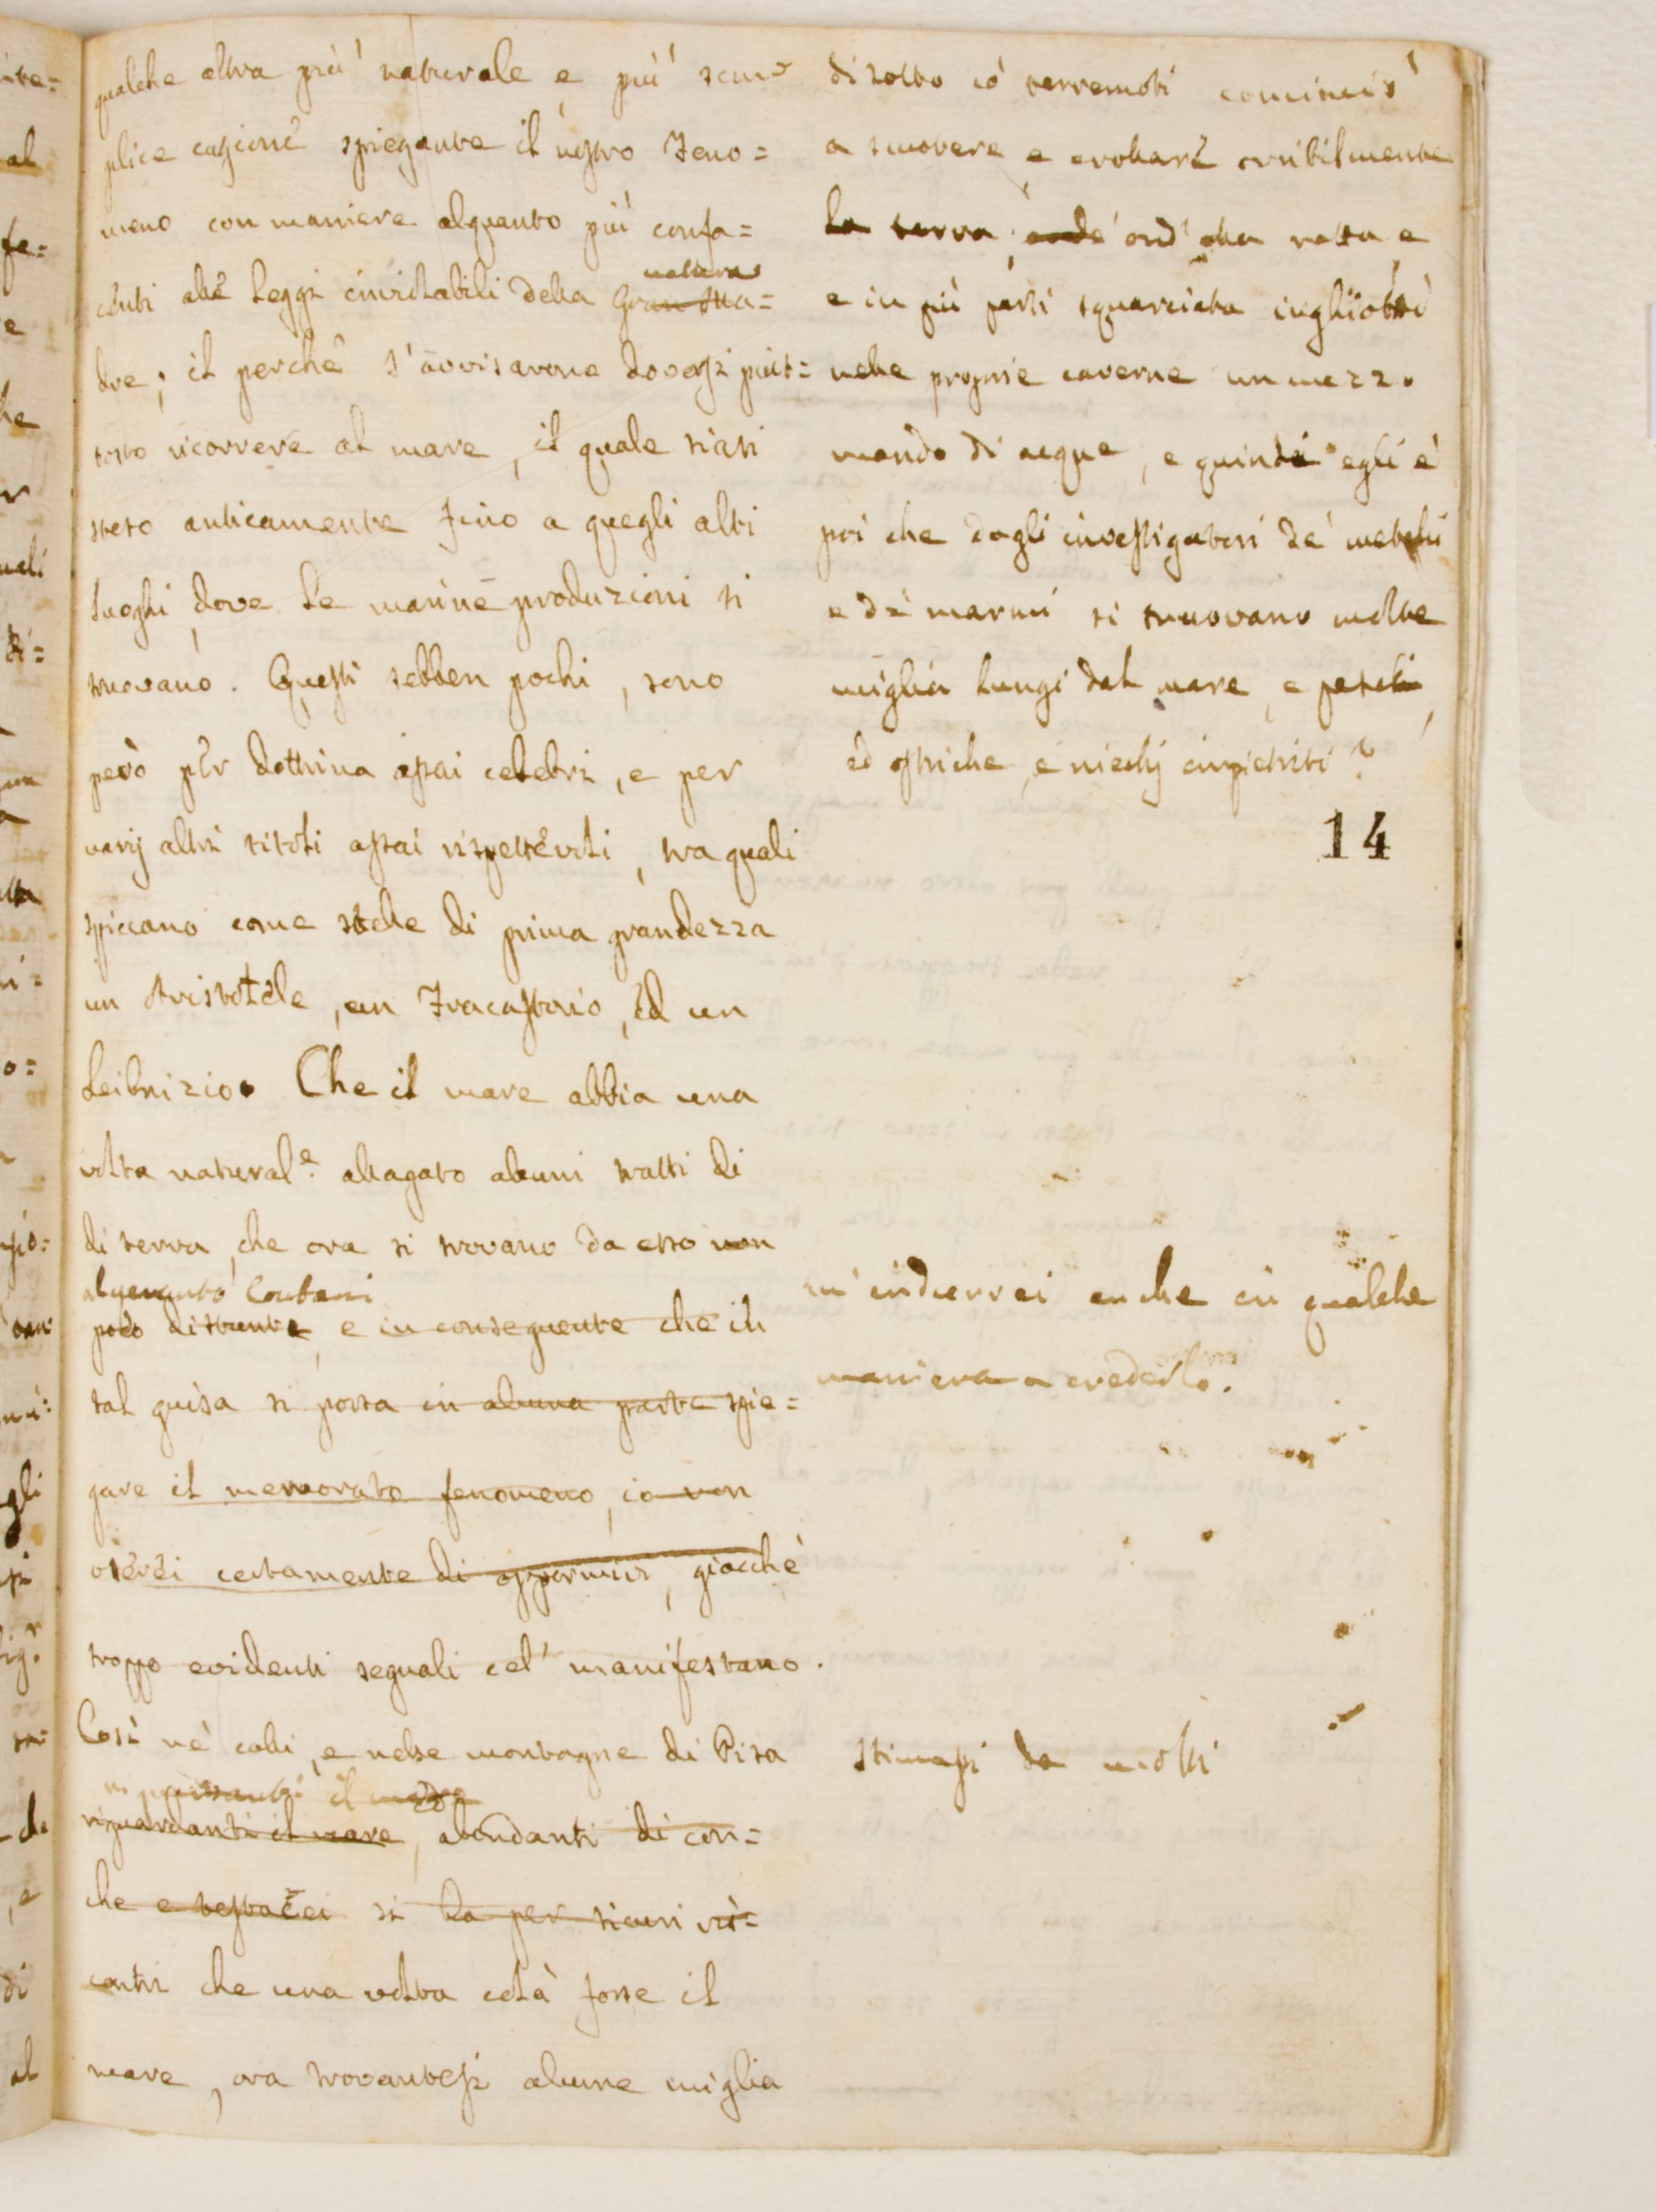 qualche altra più naturale e più sem=
plice cagione spiegante il nostro Feno=
meno con maniere alquanto più confa=
centi alle leggi inviolabili della Gran Ma=
natura
dre; il perchè s'avvisarono doversi piut=
tosto ricorrere al mare, il quale siasi
steso anticamente fino a quegli alti
luoghi dove le marine produzioni si
truovano. Questi sebben pochi, sono
però per dottrina assai celebri, e per
varij altri titoli assai rispettevoli, tra quali
spiccano come stelle di prima grandezza
un Aristotele, un Fracastorio, ed un
Leibnizio. Che il mare abbia una
volta natural.e allagato alcuni tratti di
di terra, che ora si trovano da esso non
alquanto lontani
poco distante, e in conseguente che in
tal guisa si possa in alcuna parte spie=
gare il memorato fenomeno, io non
oserei certamente di oppormici, giacchè
troppo evidenti segnali cel' manifestano.
Così nè colli, e nelle montagne di Pisa
il
riguardanti il mare, abondanti di con=
che e testacei si ha per sicuri ris=
contri che una volta colà fosse il
mare, ora trovantesi alcune miglia
di sotto co' terremoti cominciò
a smovere e crollare orribilmente
la terra, onde ond' ella rotta, e
e in più parti squarciata inghiottì
nelle proprie caverne un mezzo
mondo di acque, e quindi egli è
poi che dagli investigatori de' metalli
e de' marmi si truovano molte
miglia lungi dal mare, e petchi,
ed ostriche, e nicchj impietriti?
14
m'indurrei anche in qualche
maniera a crederlo.
stimasi da molti